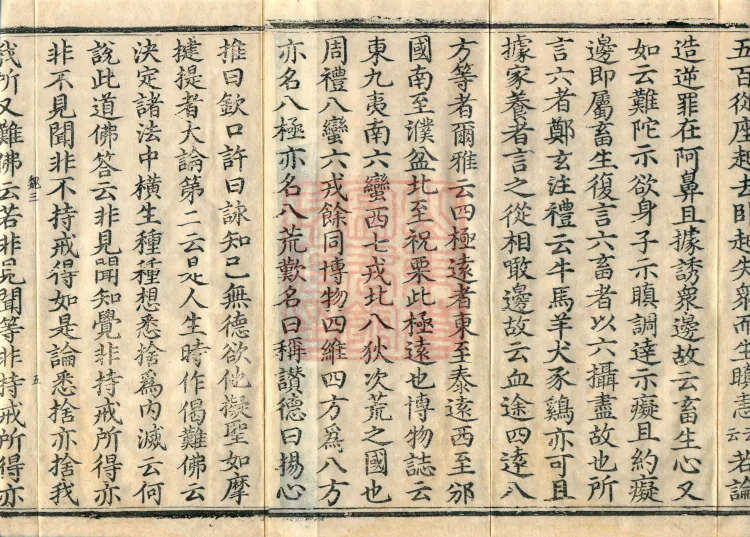 五百從座起去即起先衆而生瞋恚云若論
造逆罪在阿鼻且據誘衆邊故云畜生心又
如云難陀示欲身子示瞋調達示癡且約癡
邊即屬畜生復言六畜者以六攝盡故也所
言六者鄭玄注禮云牛馬羊犬豕鷄亦可且
據家養者言之從相噉邊故云血途四遠八
方等者爾雅云四極遠者東至泰遠西至邠
國南至濮鈆北至祝栗此極遠也博物誌云
東九夷南六蠻西七戎北八狄次荒之國也
周禮八蠻六戎餘同博物四維四方爲八方
亦名八極亦名八荒歎名曰稱讃德曰揚心
推曰欽口許曰詠知己無德欲他擬聖如摩
揵提者大論第二云是人生時作偈難佛云
決定諸法中橫生種種想悉捨爲內滅云何
說此道佛答云非見聞知覺非持戒所得亦
非不見聞非不持戒得如是論悉捨亦捨我
觀三 五
我所又難佛云若非見聞等非持戒所得亦